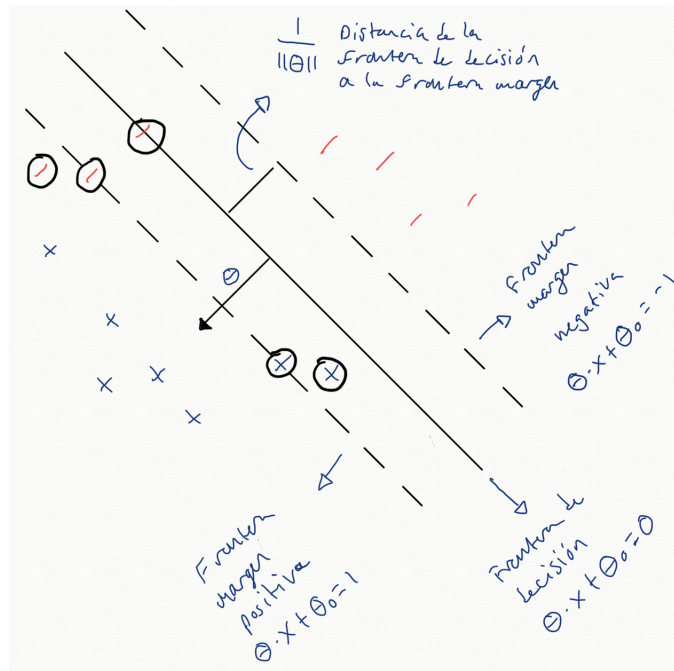 1 Distancia de la
||θ|| frontera de decisión
a la frontera margen
θ
Frontera
margen
negativa
θ·x+θ₀=-1
Frontera
margen
positiva
θ·x+θ₀=1
Frontera de
decisión
θ·x+θ₀=0